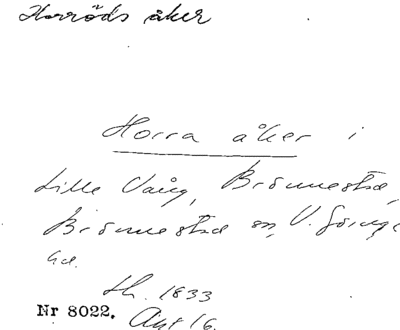 Horröds åker
Horra åker i
Lille Vång, Brönnestad,
Brönnestad sn, V. Göinge
hd.
Sk. 1833
Nr 8022. Akt 16.